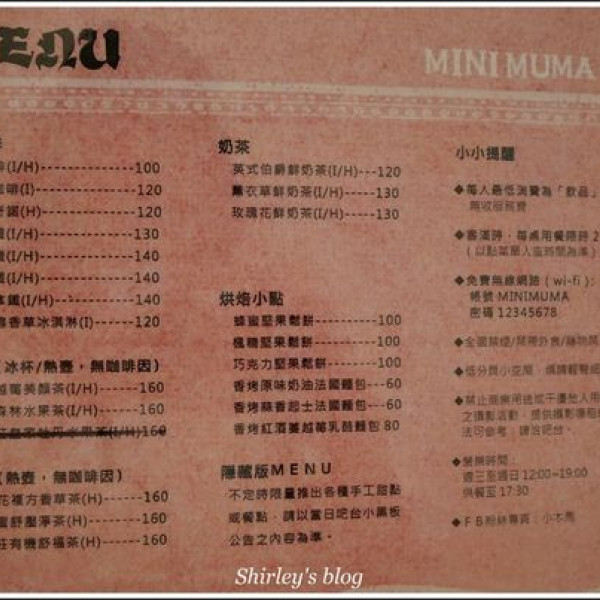 ENU
MINI MUMA
(I/H)--------------100
啡(I)---------------120
(H)---------------120
(I/H)-------------130
(I/H)-------------140
(I/H)-------------140
(I/H)-------------140
香草冰淇淋(I)------120
(冰杯/熱壺，無咖啡因)
越莓美顏茶(I/H)------160
森林水果茶(I/H)------160
水果茶(I/H)160
(熱壺，無咖啡因)
花複方香草茶(H)------160
舒壓淨茶(H)--------160
莊有機舒福茶(H)------160
奶茶
英式伯爵鮮奶茶(I/H)---120
薰衣草鮮奶茶(I/H)-----130
玫瑰花鮮奶茶(I/H)-----130
烘焙小點
蜂蜜堅果鬆餅----------100
楓糖堅果鬆餅----------100
巧克力堅果鬆餅--------100
香烤原味奶油法國麵包---60
香烤蒜香起士法國麵包---60
香烤紅酒蔓越莓乳酪麵包 80
隱藏版MENU
不定時限量推出各種手工甜點
或餐點，請以當日吧台小黑板
公告之內容為準。
小小提醒
◆每人最低消費為「飲品」
無收服務費
◆客滿時，每桌用餐限時2
(以點菜單入座時間為準)
◆免費無線網路(wi-fi):
帳號 MINIMUMA
密碼 12345678
◆全面禁煙/禁帶外食/
◆低分貝小空間，煩請輕聲細
◆禁止商業用途或干擾他人用
之攝影活動，提供攝影
法可參考，請洽吧台。
◆營業時間：
週三至週日 12:00~19:00
供餐至 17:30
◆FB粉絲專頁：小木馬
Shirley's blog